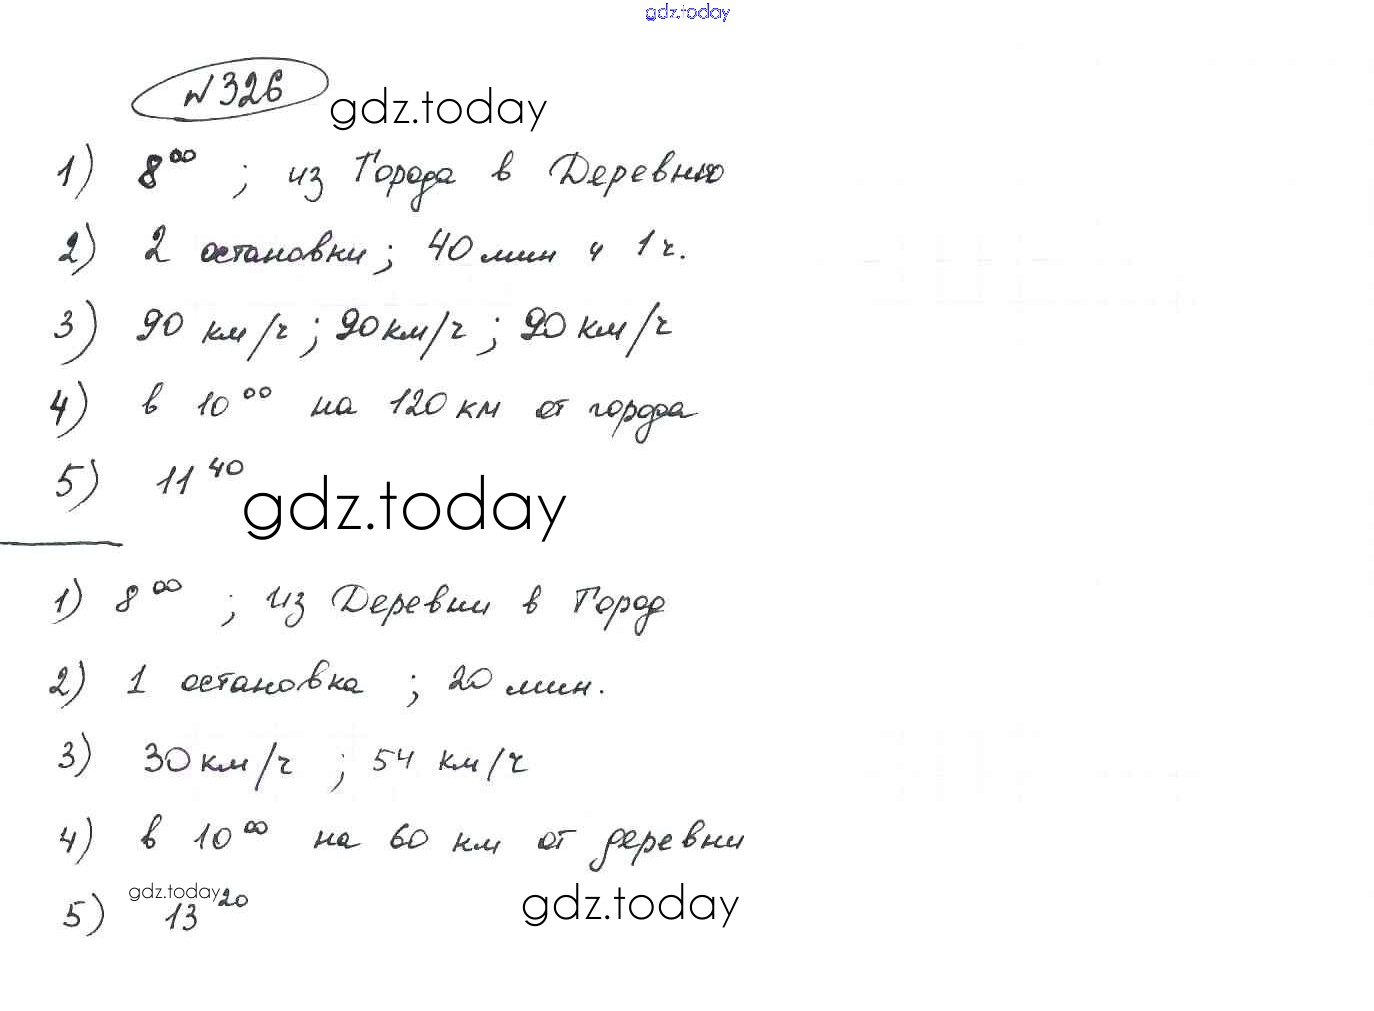 gdz.today
№326
gdz.today
1) 8⁰⁰ ; из Города в Деревню
2) 2 остановки; 40 мин и 1 ч.
3) 90 км/ч ; 90 км/ч ; 90 км/ч
4) в 10⁰⁰ на 120 км от города
5) 11⁴⁰
gdz.today
1) 8⁰⁰ ; из Деревни в Город
2) 1 остановка ; 20 мин.
3) 30 км/ч ; 54 км/ч
4) в 10⁰⁰ на 60 км от деревни
gdz.today
5) 13²⁰
gdz.today